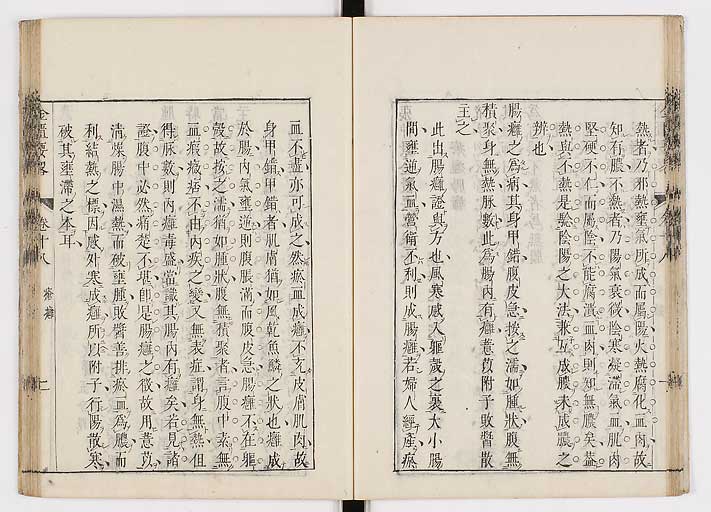 熱者乃邪熱壅氣所成而屬陽火熱腐化血肉故
知有膿不熱者乃陽氣衰微陰寒凝滯氣血肌肉
堅硬不仁而屬陰不能腐潰血肉則知無膿矣蓋
熱與不熱是驗陰陽之大法兼互成膿未成膿之
辨也
腸癰之為病其身甲錯腹皮急按之濡如腫狀腹無
積聚身無熱脉數此為腸內有癰薏苡附子敗醬散
主之
此出腸癰證與方也風寒感入軀殼之裏大小腸
間壅逆氣血營衛不利則成腸癰若婦人經產瘀
血不盡亦可成之然瘀血成癰不充皮膚肌肉故
身甲錯甲錯者肌膚猶如風乾魚鱗之狀也癰成
於腸內氣壅逆則腹脹滿而腹皮急腸癰不在軀
殼故按之濡猶如腫狀腹無積聚者言腹中素無
血瘕癥痞不由內疾之變又無表症謂身無熱但
得脉數則內癰毒盛當識其腸內有癰矣若見諸
證腹中必然痛楚不堪即是腸癰之徵故用薏苡
清燥腸中濕熱而破壅腫敗醬善排瘀血為膿而
利結熱之標因感外寒成癰所以附子行陽散寒
破其壅滯之本耳
金匱要略
卷十八
瘡癰
七